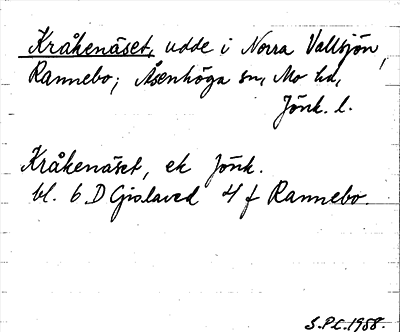 Kråkenäset, udde i Norra Vallsjön,
Rannebo; Åsenhöga sn, Mo hd,
Jönk. l.
Kråkenäset, ek Jönk.
bl. 6 D Gislaved 4 f Rannebo.
S.P.L. 1988.